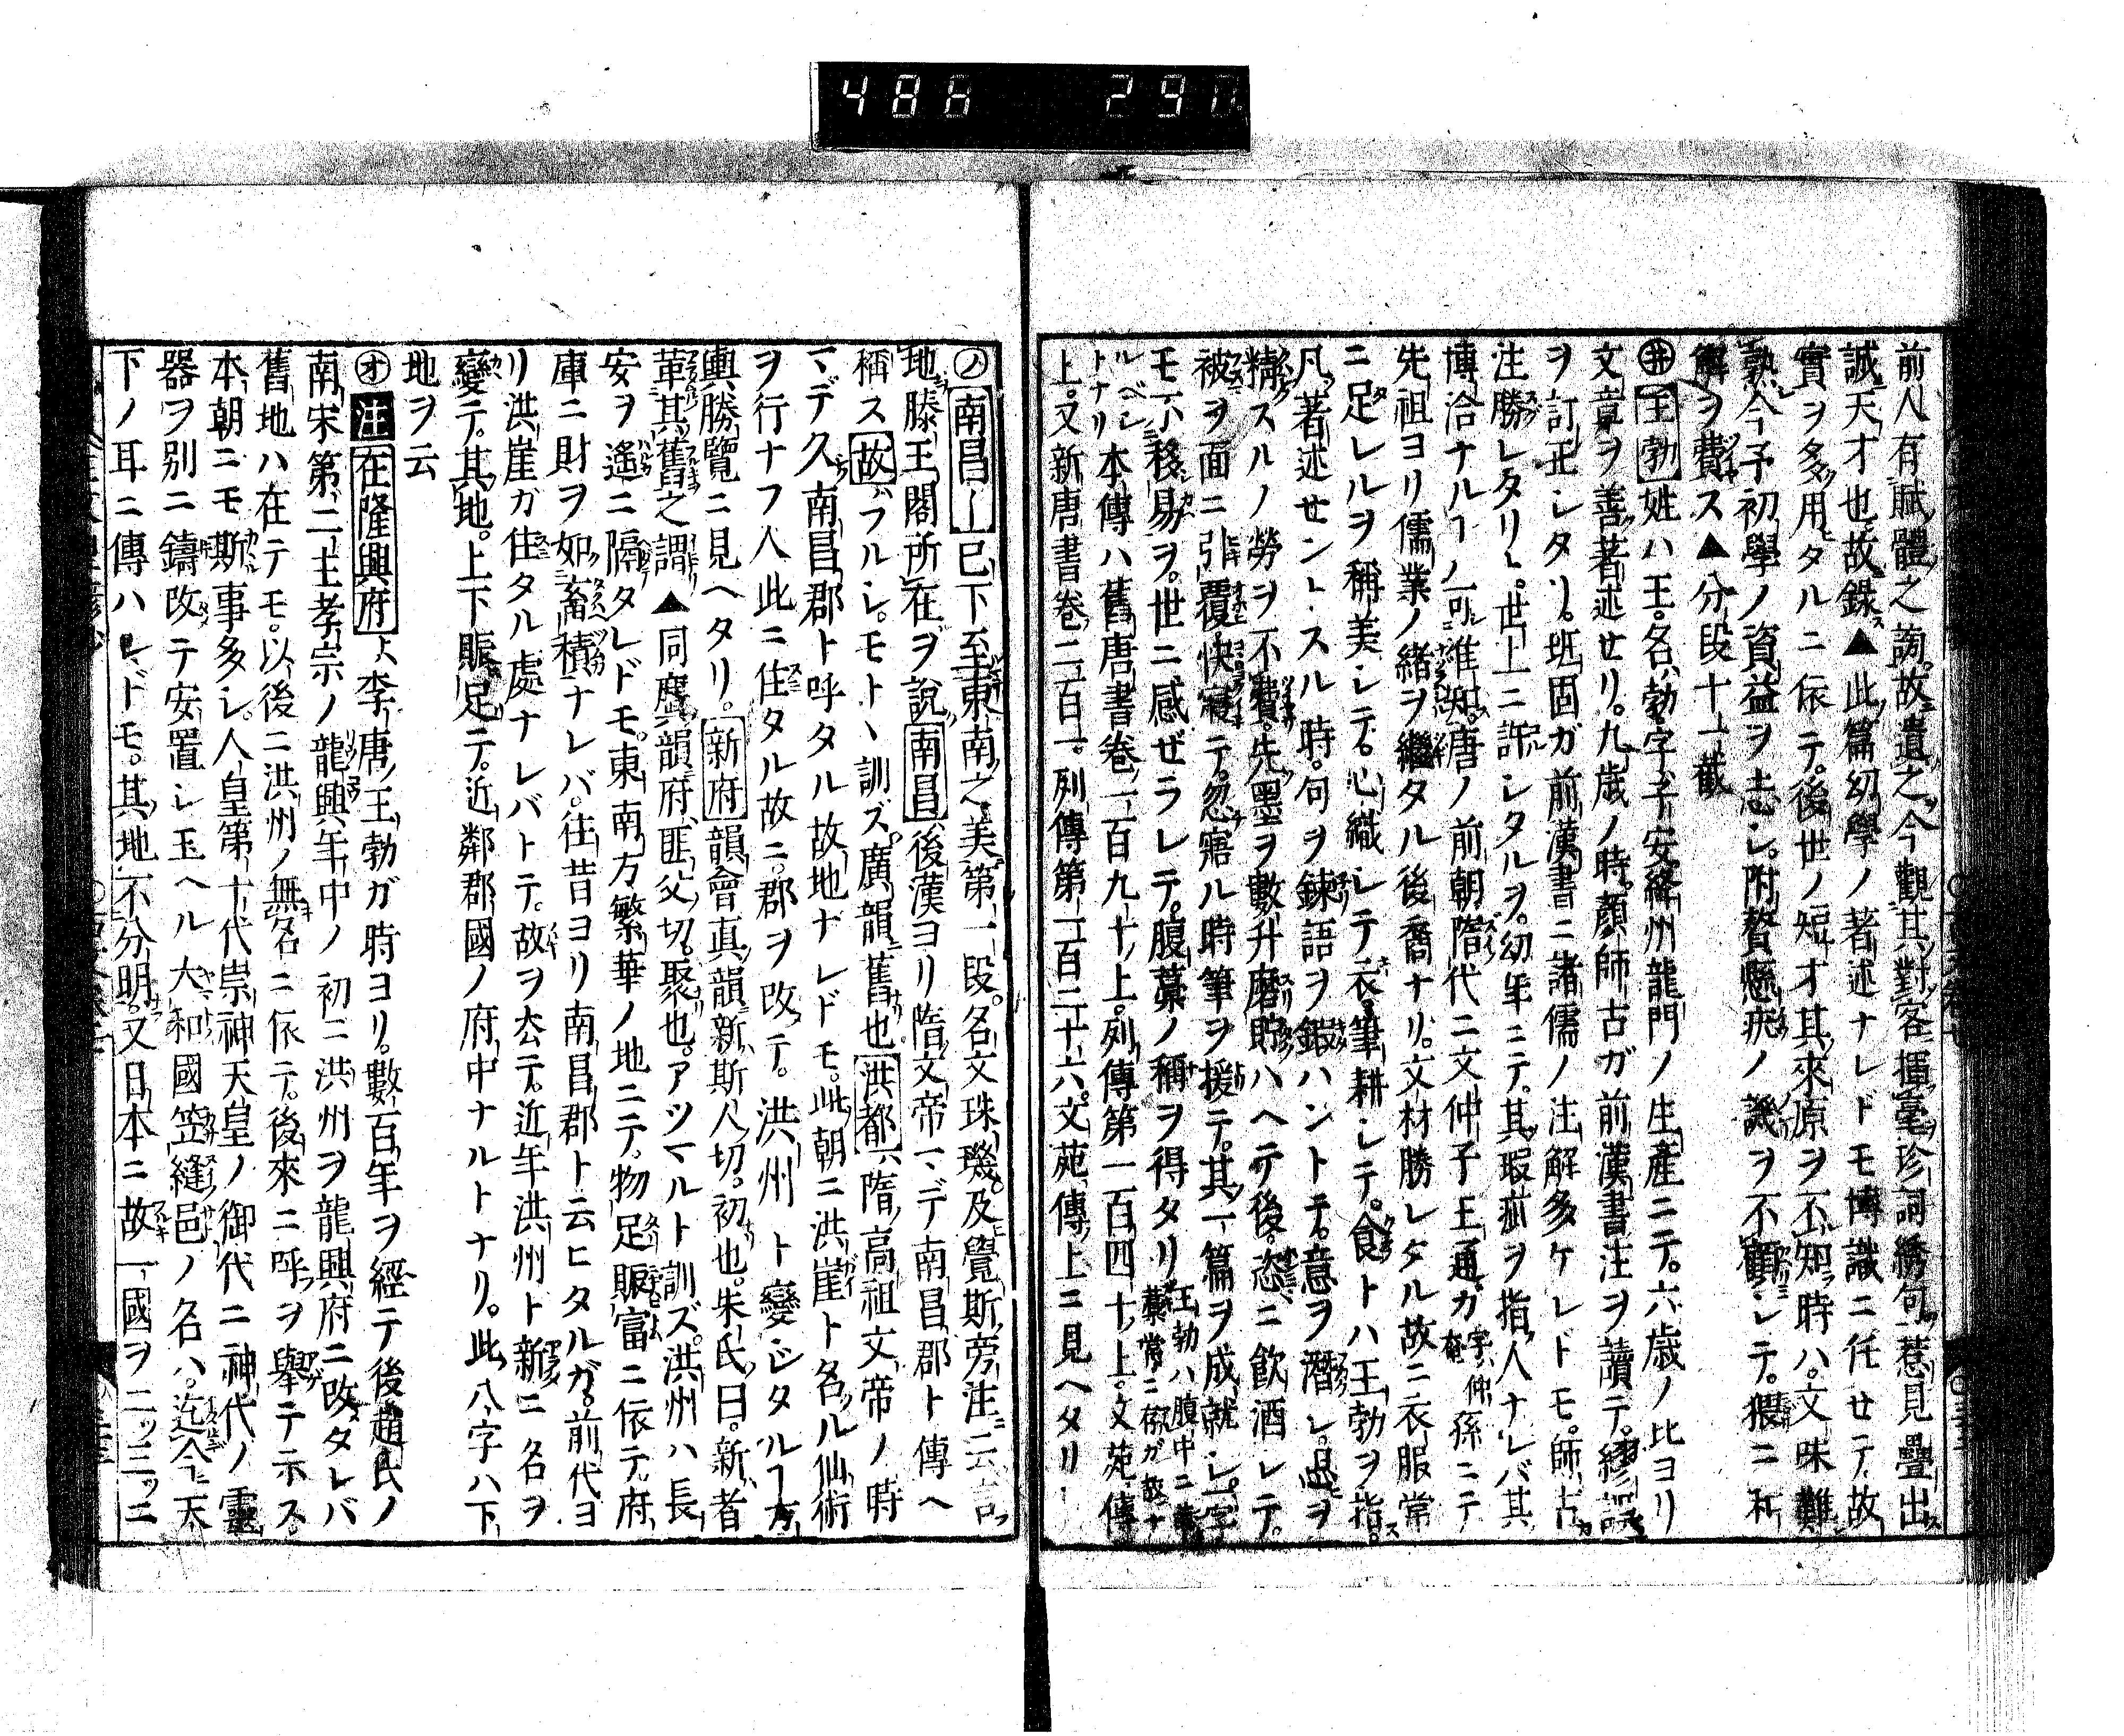 486 290
前人有賦體之詢故遺之今觀其對客揮毫珍詞綉句惹見疊出
誠天才也故錄▲此篇幼學ノ著述ナレドモ博識ニ任セテ故
實ヲ多用タルニ依テ後世ノ短才其來原ヲ不知時ハ文昧難
熟今予初學ノ資益ヲ志シ附贅懸疣ノ譏ヲ不顧シテ猥ニ和
解ヲ費ス▲分段十一截
㋼王勃姓ハ王名勃字子安絳州龍門ノ生產ニテ六歳ノ比ヨリ
文章ヲ善著述セリ九歳ノ時顏師古ガ前漢書注ヲ讀テ繆誤
ヲ訂正シタリ班固ガ前漢書ニ諸儒ノ注解多ケレドモ師古
注勝レタリト世上ニ許シタルヲ幼年ニテ其瑕疵ヲ指人ナレバ其
博洽ナルヿノ可惟知唐ノ前朝隋代ニ文仲子王通ガ字ハ仲淹孫ニテ
先祖ヨリ儒業ノ緒ヲ繼タル後裔ナリ文材勝レタル故ニ衣服常
ニ足レルヲ稱美シテ心織シテ衣筆耕シテ食トハ王勃ヲ指ス
凡著述セントスル時句ヲ鍊語ヲ鍛ハントテ意ヲ潛シ思ヲ
精スルノ勞ヲ不費先墨ヲ數升磨貯ハヘテ後恣ニ飲酒シテ
被ヲ面ニ引覆快寢テ忽寤ル時筆ヲ援テ其一篇ヲ成就シ一字
モ不移易ヲ世ニ感ゼラレテ腹藁ノ稱ヲ得タリ王勃ハ腹中ニ藁常ニ存ガ故ナ
ルベシトナリ本傳ハ舊唐書卷一百九十上列傳第一百四十上文苑傳
上又新唐書卷二百一列傳第一百二十六文苑傳上ニ見ヘタリ
㋨南昌ー已下至東南之美第一段名文珠璣及覺斯旁注ニ云言フ
地滕王閣所在ヲ說南昌後漢ヨリ隋文帝マデ南昌郡ト傳ヘ
稱ス故フルシモトヽ訓ズ廣韻舊也洪都ハ隋高祖文帝ノ時
マデ久南昌郡ト呼タル故地ナレドモ此朝ニ洪崖ト名ル仙術
ヲ行ナフ人此ニ住タル故ニ郡ヲ改テ洪州ト變ジタルヿ方
輿勝覽ニ見ヘタリ新府韻會真韻新斯人切初也朱氏曰新者
革其舊之謂▲同麌韻府匪父切聚也アツマルト訓ズ洪州ハ長
安ヲ遙ニ隔タレドモ東南方繁華ノ地ニテ物足賑富ニ依テ府
庫ニ財ヲ如畜積ナレバ往昔ヨリ南昌郡ト云ヒタルガ前代ヨ
リ洪崖ガ住タル處ナレバトテ故ヲ厺テ近年洪州ト新ニ名ヲ
變テ其地上下賑足テ近鄰郡國ノ府中ナルトナリ此八字ハ下
地ヲ云
㋔注在隆興府ハ李唐王勃ガ時ヨリ數百年ヲ經テ後趙氏ノ
南宋第二主孝宗ノ龍興年中ノ初ニ洪州ヲ龍興府ニ改タレバ
舊地ハ在テモ以後ニ洪州ノ無名ニ依テ後來ニ呼ヲ舉テ示ス
本朝ニモ斯事多シ人皇第十代崇神天皇ノ御代ニ神代ノ靈
器ヲ別ニ鑄改テ安置シ玉ヘル大和國笠縫邑ノ名ハ迄今ニ天
下ノ耳ニ傳ハレドモ其地不分明又日本ニ故一國ヲ二ッ三ッニ